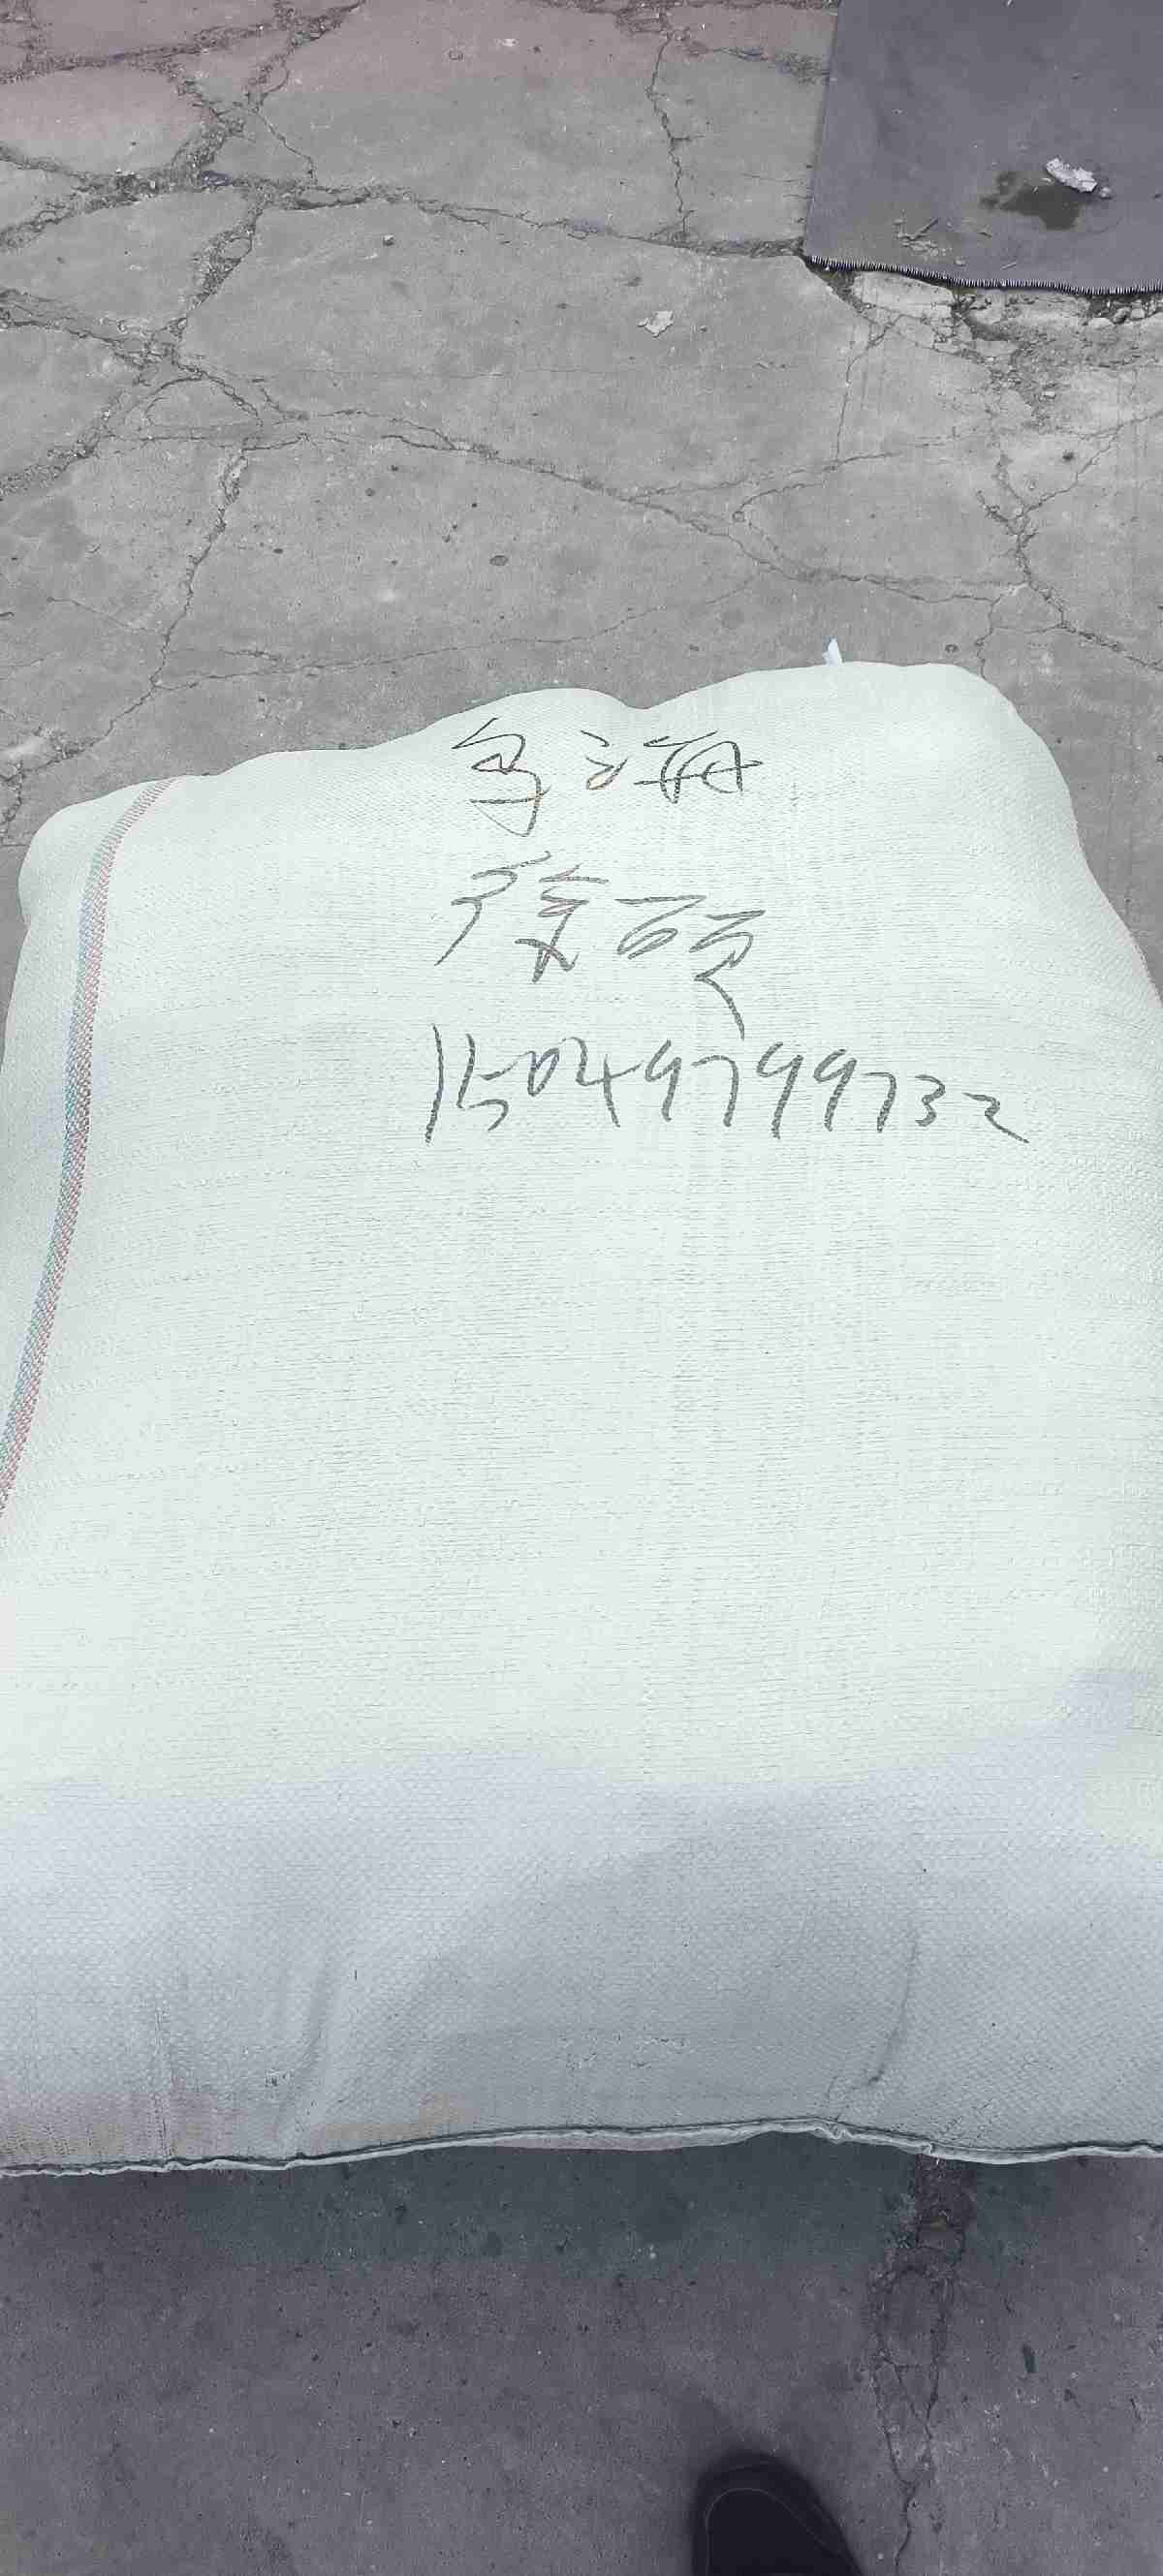 乌海
徐硕
15049799732